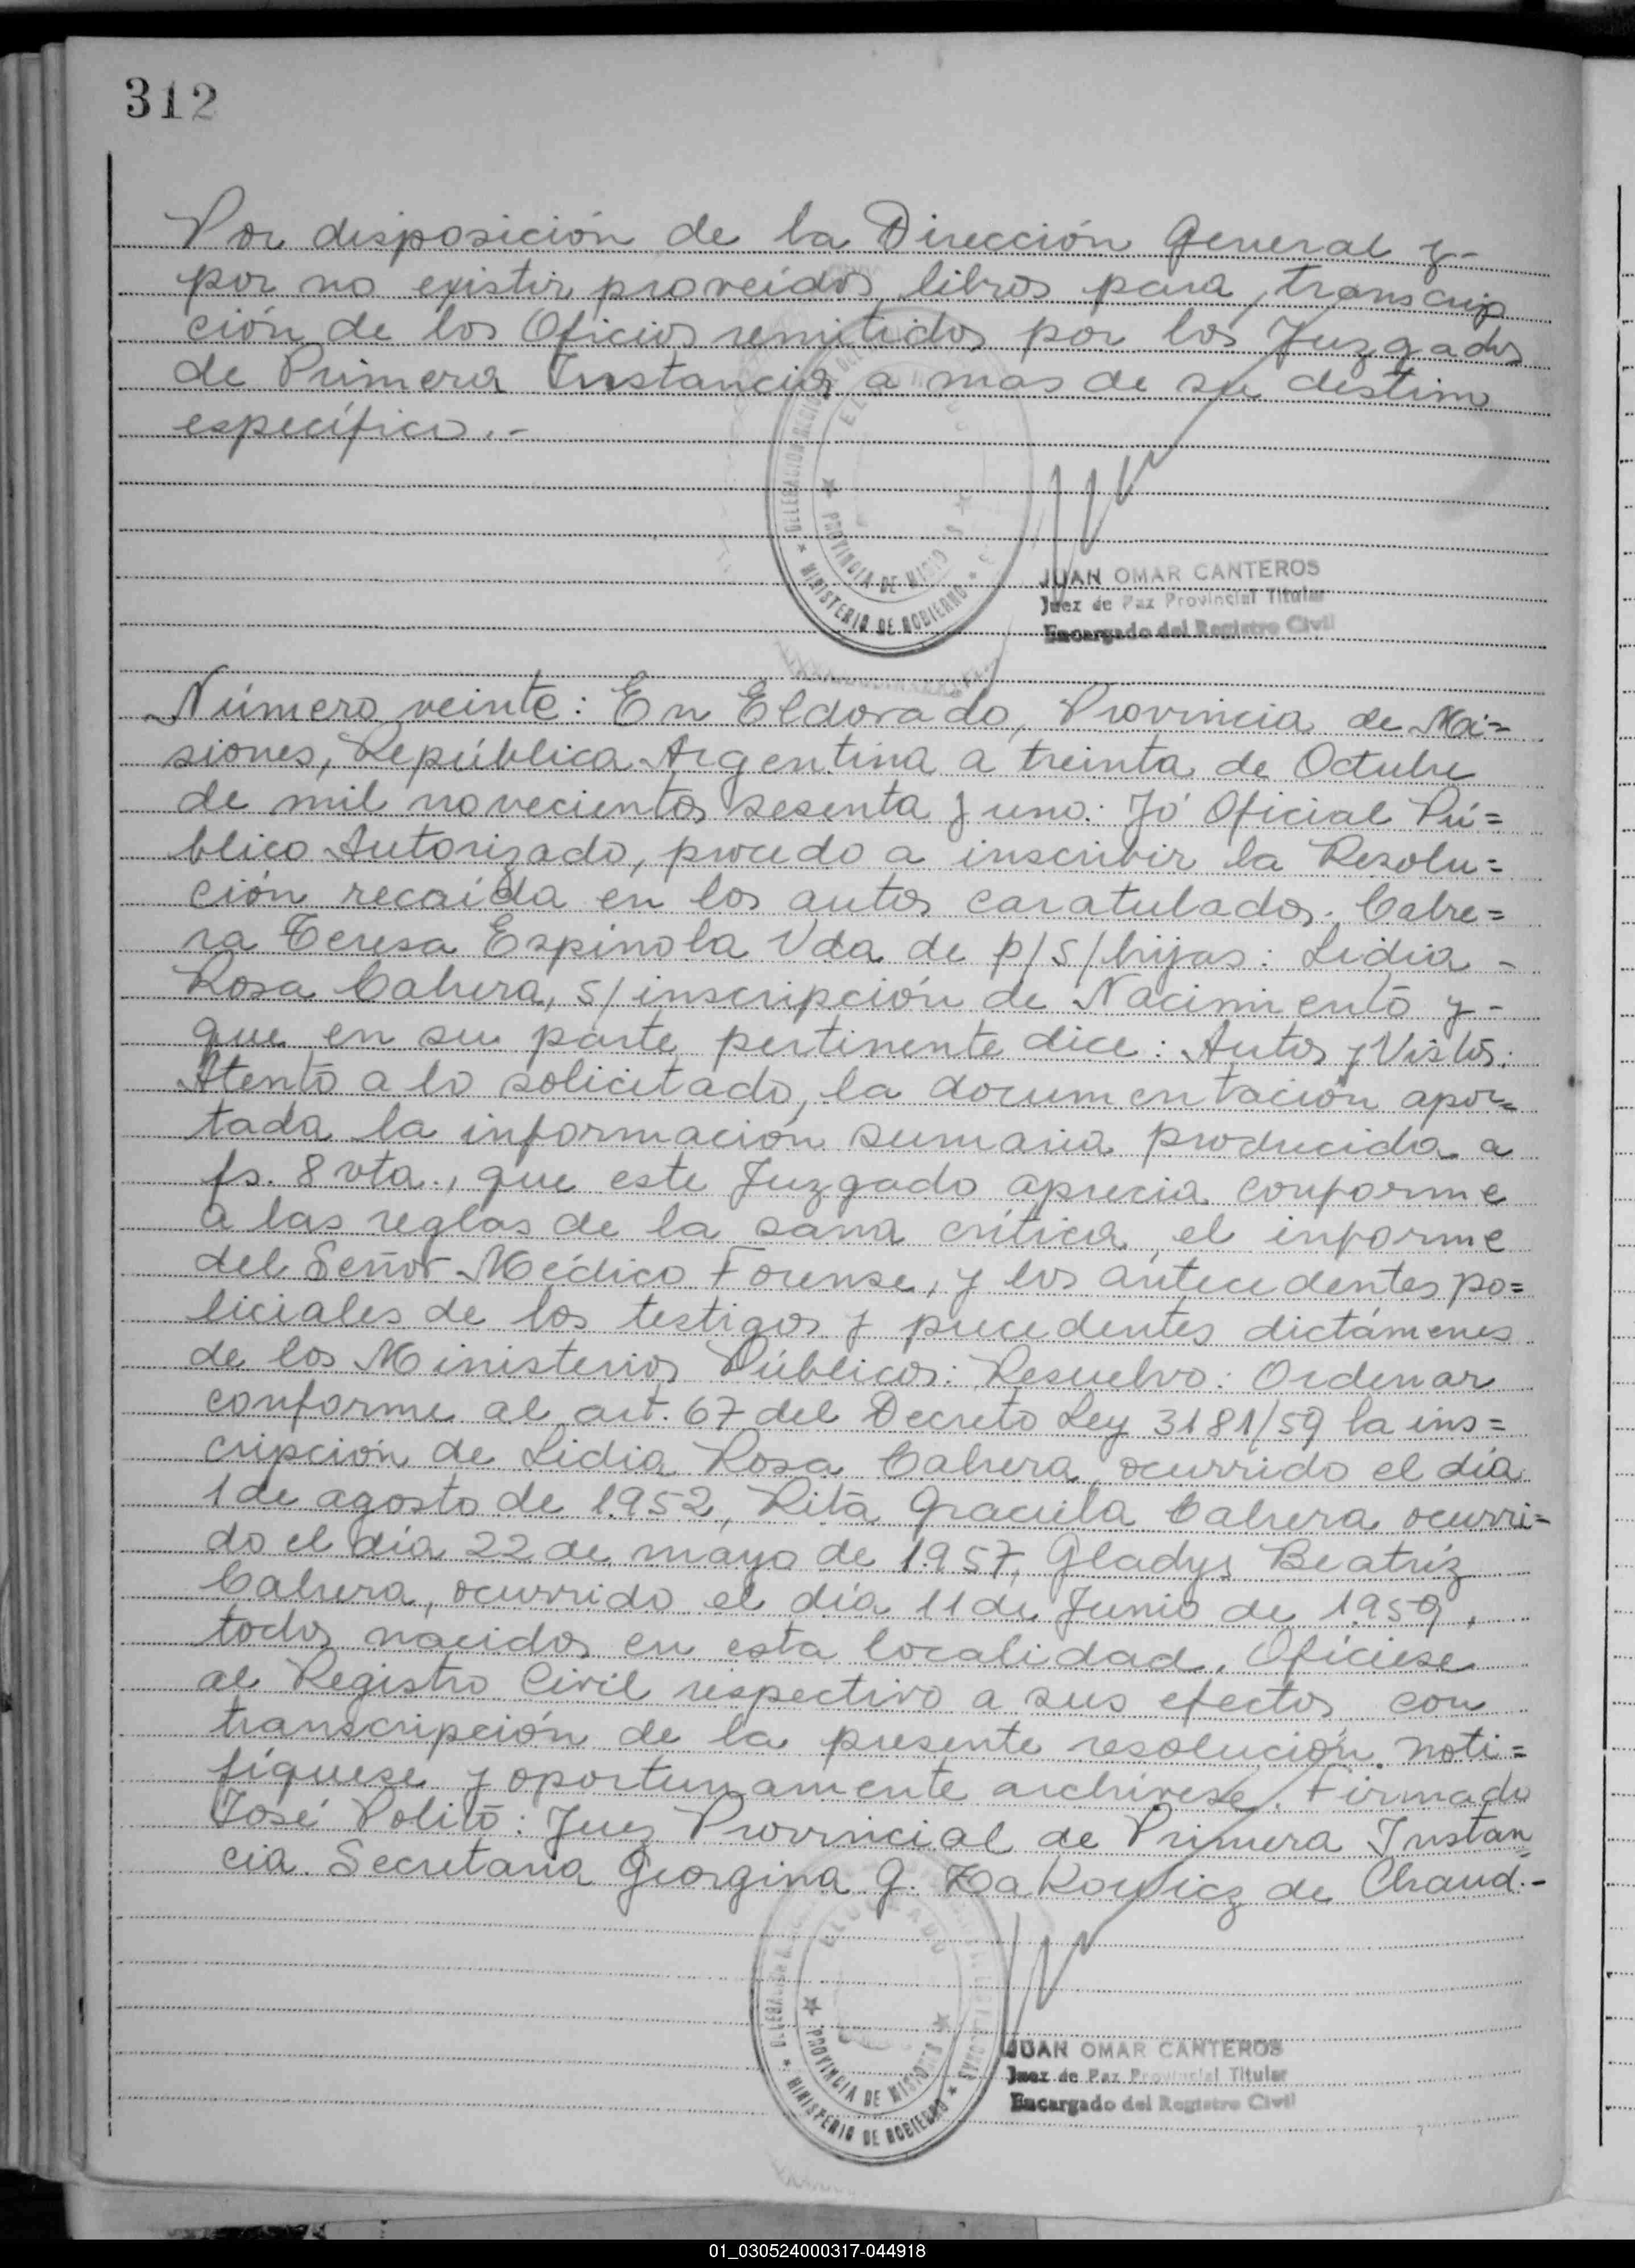 312
Por disposición de la Dirección General y-
por no existir proveídos libros para transcrip
ción de los Oficios remitidos por los Juzgados
de Primera Instancia a mas de su destino
específico.-
JUAN OMAR CANTEROS
Juez de Paz Provincial Titular
Encargado del Registro Civil
PROVINCIA DE MISIONES
MINISTERIO DE GOBIERNO
Número veinte: En Eldorado, Provincia de Mi=
siones, República Argentina a treinta de Octubre
de mil novecientos sesenta y uno: Yó Oficial Pú=
blico Autorizado, procedo a inscribir la Resolu=
ción recaída en los autos caratulados. Cabre=
ra Teresa Espínola Vda de p/s/hijas: Lidia -
Rosa Cabrera, s/inscripción de Nacimiento y-
que en su parte pertinente dice: Autos y Vistos:
Atento a lo solicitado, la documentación apor=
tada la información sumaria producida a
fs. 8 vta., que este Juzgado aprecia conforme
a las reglas de la sana crítica, el informe
del Señor Médico Forense, y los antecedentes po=
liciales de los testigos y precedentes dictámenes
de los Ministerios Públicos: Resuelvo: Ordenar
conforme al art. 67 del Decreto Ley 3181/59 la ins=
cripción de Lidia Rosa Cabrera, ocurrido el día
1 de agosto de 1952, Rita Graciela Cabrera ocurri=
do el día 22 de mayo de 1957, Gladys Beatríz
Cabrera, ocurrido el día 11 de Junio de 1959,
todos nacidos en esta localidad. Ofíciese
al Registro Civil respectivo a sus efectos con
transcripción de la presente resolución. noti=
fíquese y oportunamente archívese. Firmado
José Polito: Juez Provincial de Primera Instan=
cia. Secretaria Georgina G. Zakowicz de Chaud.-
ELDORADO
PROVINCIA DE MISIONES
MINISTERIO DE GOBIERNO
JUAN OMAR CANTEROS
Juez de Paz Provincial Titular
Encargado del Registro Civil
01_030524000317-044918